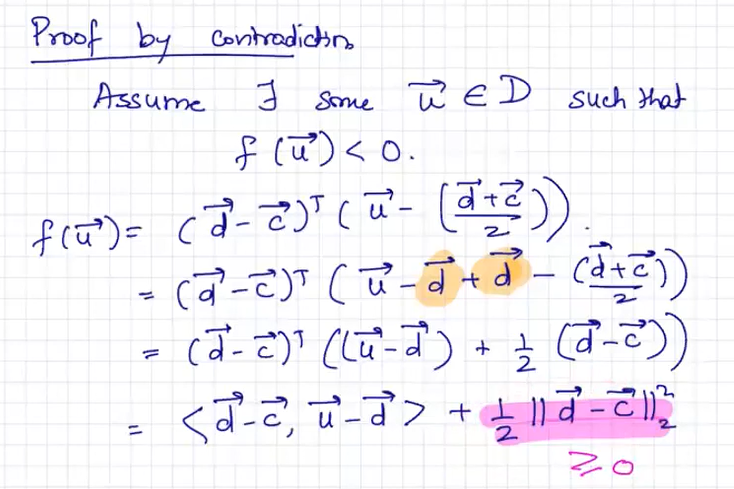 Proof by contradiction
Assume ∃ some u⃗ ∈ D such that
f(u⃗) < 0.
f(u⃗) = (d⃗ - c⃗)ᵀ (u⃗ - (d⃗ + c⃗)/2)).
= (d⃗ - c⃗)ᵀ (u⃗ - d⃗ + d⃗ - (d⃗ + c⃗)/2))
= (d⃗ - c⃗)ᵀ ((u⃗ - d⃗) + 1/2 (d⃗ - c⃗))
= <d⃗ - c⃗, u⃗ - d⃗> + 1/2 ||d⃗ - c⃗||₂²
≥ 0